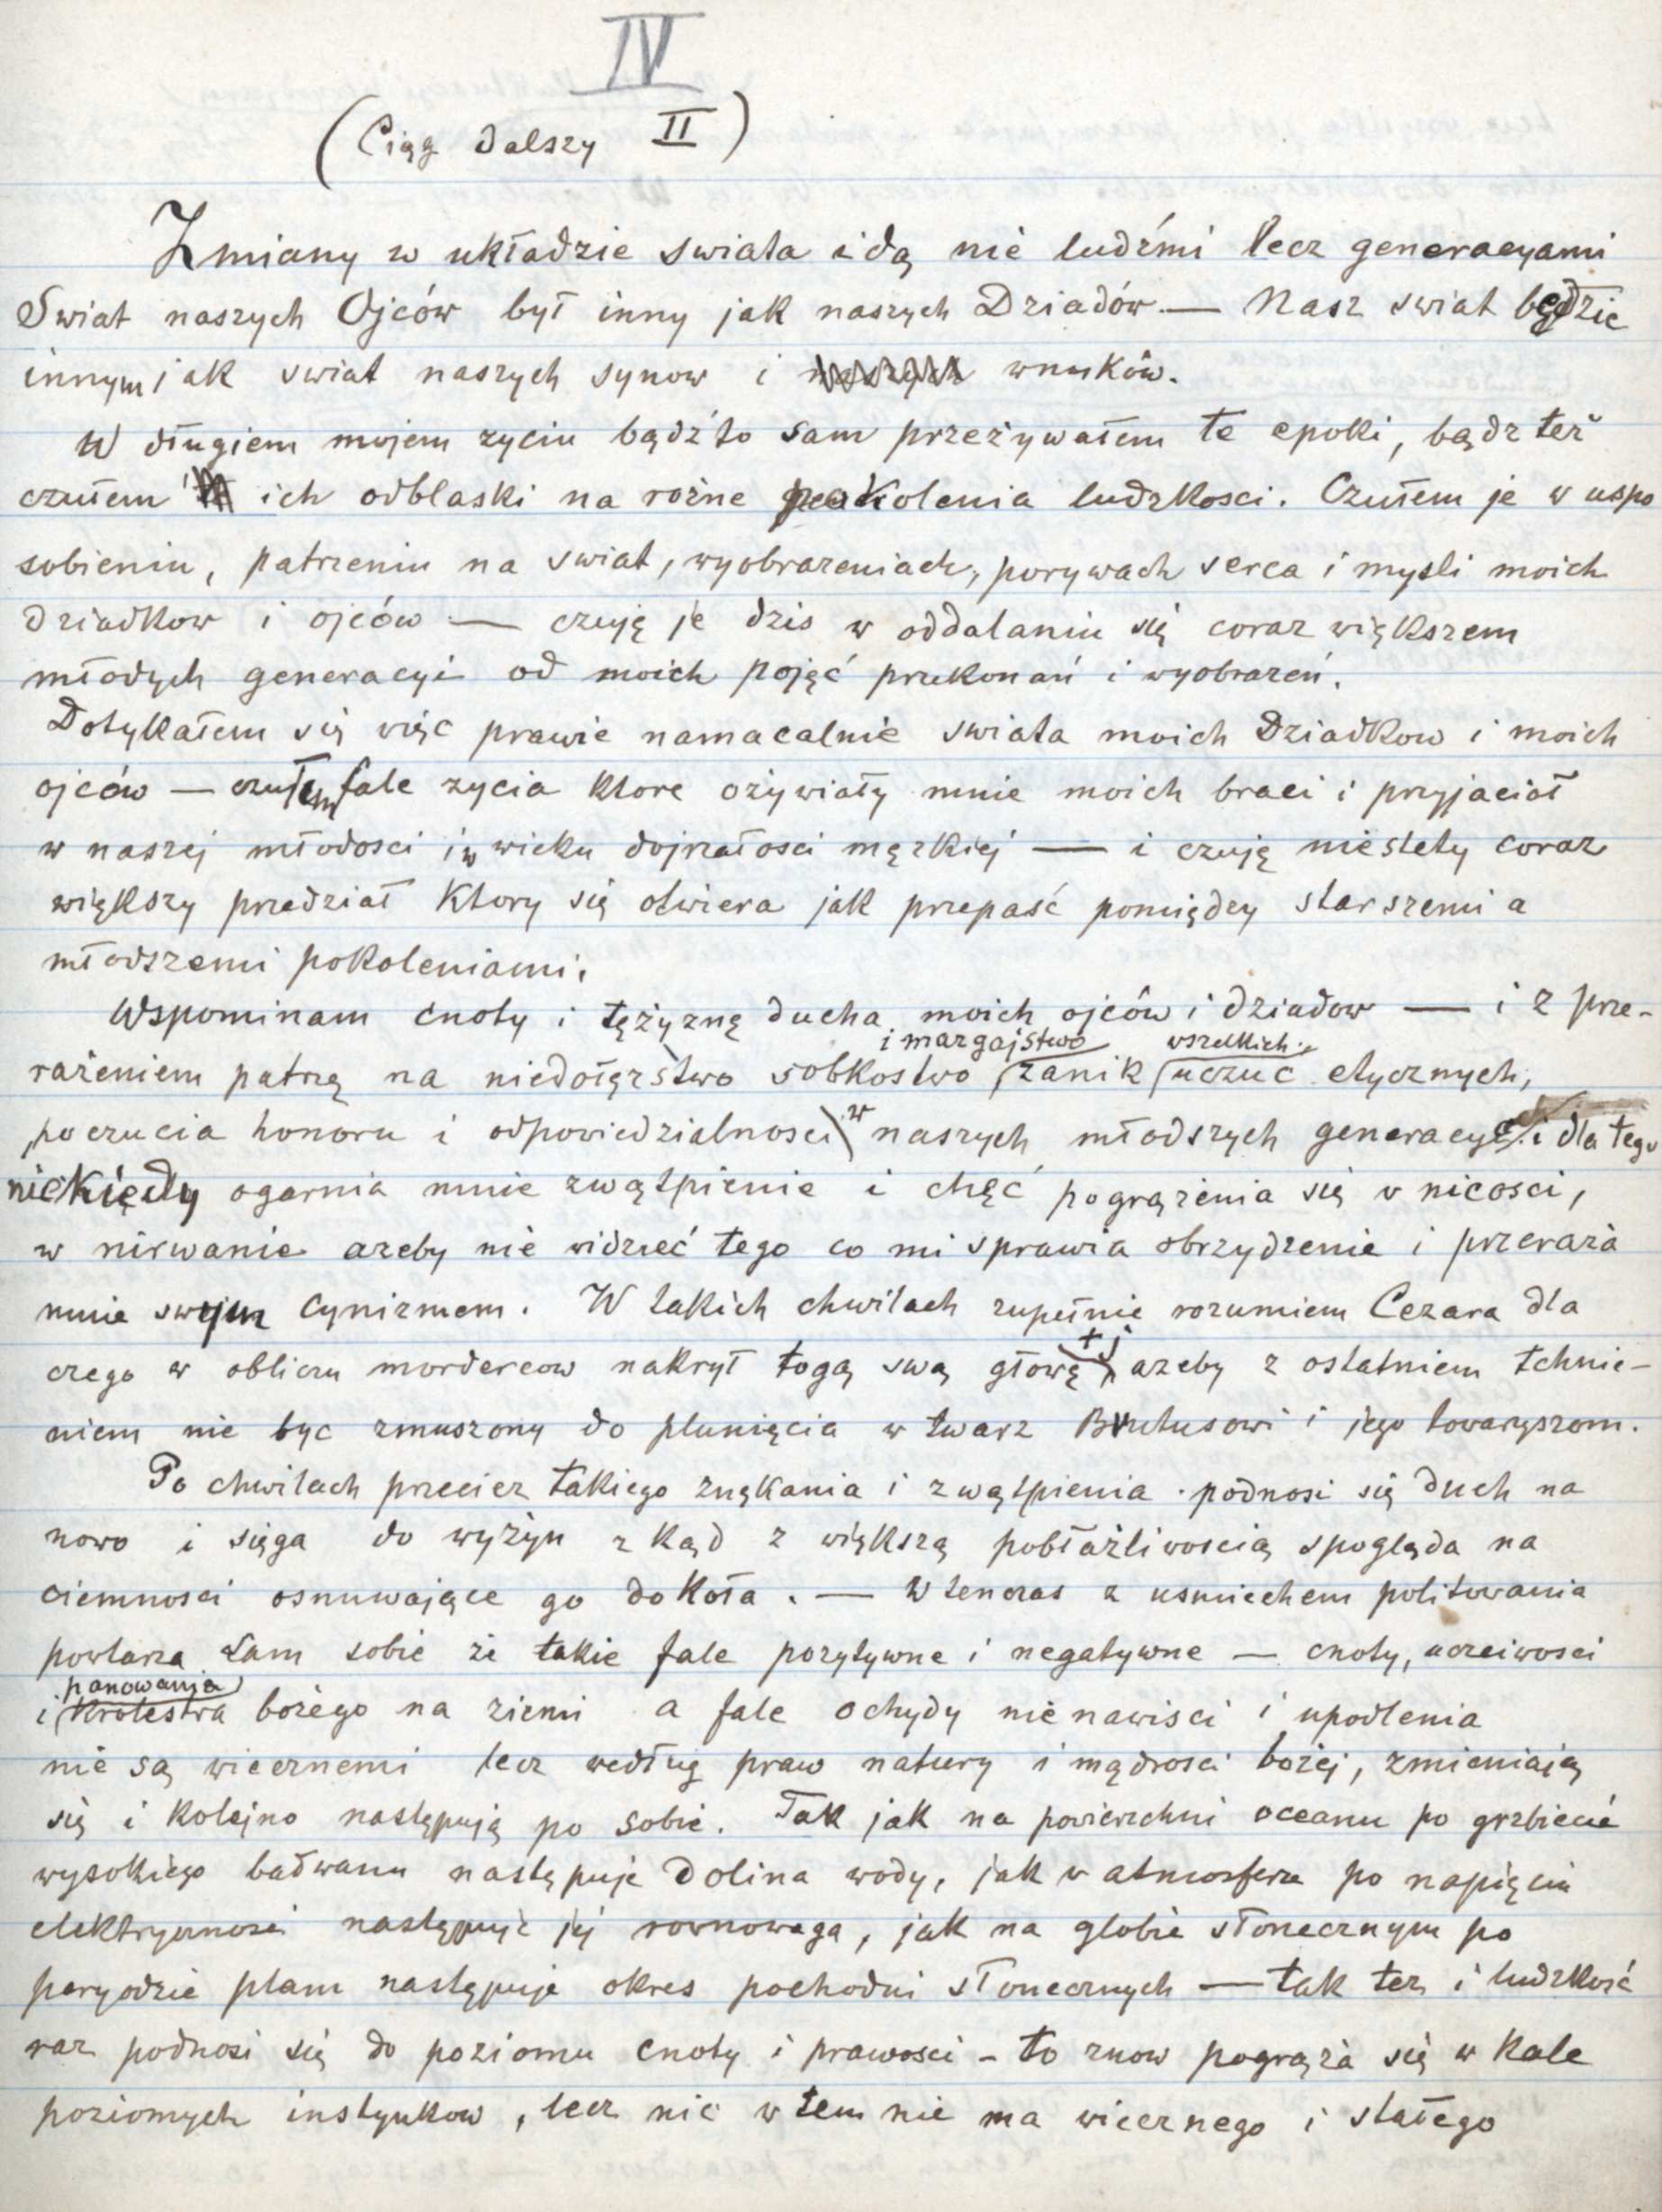 IV
(Ciąg dalszy II)
Zmiany w układzie swiata idą nie ludźmi lecz generacyami
Swiat naszych Ojców był inny jak naszych Dziadów. — Nasz swiat będzie
innym jak swiat naszych synow i wnuków.
W długiem mojem zyciu bądź to sam przeżywałem te epoki, bądz też
czułem ich odblaski na rożne pokolenia ludzkosci. Czułem je w uspo
sobieniu, patrzeniu na swiat, wyobrazeniach, porywach serca i mysli moich
dziadkow i ojców — czuję je dzis w oddalaniu się coraz większem
młodych generacyi od moich pojęć przekonań i wyobrazeń.
Dotykałem się więc prawie namacalnie swiata moich Dziadkow i moich
ojców — czułem fale zycia ktore ożywiały mnie moich braci i przyjaciół
w naszej młodosci i w wieku dojrzałosci męzkiej — i czuję niestety coraz
większy przedział ktory się otwiera jak przepaść pomiędzy starszemi a
młodszemi pokoleniami.
Wspominam cnoty i tężyznę ducha moich ojców i dziadow — i z prze-
rażeniem patrzę na niedołęzstwo sobkostwo i mazgajstwo zanik wszelkich uczuc etycznych,
poczucia honoru i odpowiedzialnosci w naszych młodszych generacyi i dla tego
niekiedy ogarnia mnie zwątpienie i chęć pogrązenia się w nicosci,
w nirwanie azeby nie widzieć tego co mi sprawia obrzydzenie i przeraża
mnie swojem cynizmem. W takich chwilach zupełnie rozumiem Cezara dla
czego w obliczu mordercow nakrył togą swą głowę tj azeby z ostatniem tchnie-
niem nie byc zmuszony do plunięcia w twarz Brutusowi i jego towaryszom.
Po chwilach przeciez takiego znękania i zwątpienia podnosi się duch na
nowo i sięga do wyżyn z kąd z większą pobłażliwoscią spogląda na
ciemnosci osnuwające go dokoła. — Wtenczas z usmiechem politowania
powtarza sam sobie że takie fale pozytywne i negatywne — cnoty, uczciwosci
i panowania Krolestwa bożego na ziemi a fale ochydy nienawisci i upodlenia
nie są wiecznemi lecz według praw natury i mądrosci bożej, zmieniają
się i kolejno następują po sobie. Tak jak na powierzchni oceanu po grzbiecie
wysokiego bałwanu następuje dolina wody, jak w atmosferze po napięciu
elektrycznosci następuje jej rownowaga, jak na globie słonecznym po
peryodzie plam następuje okres pochodni słonecznych — tak tez i ludzkość
raz podnosi się do poziomu cnoty i prawosci - to znow pogrąża się w kale
poziomych instynkow, lecz nic w tem nie ma wiecznego i stałego